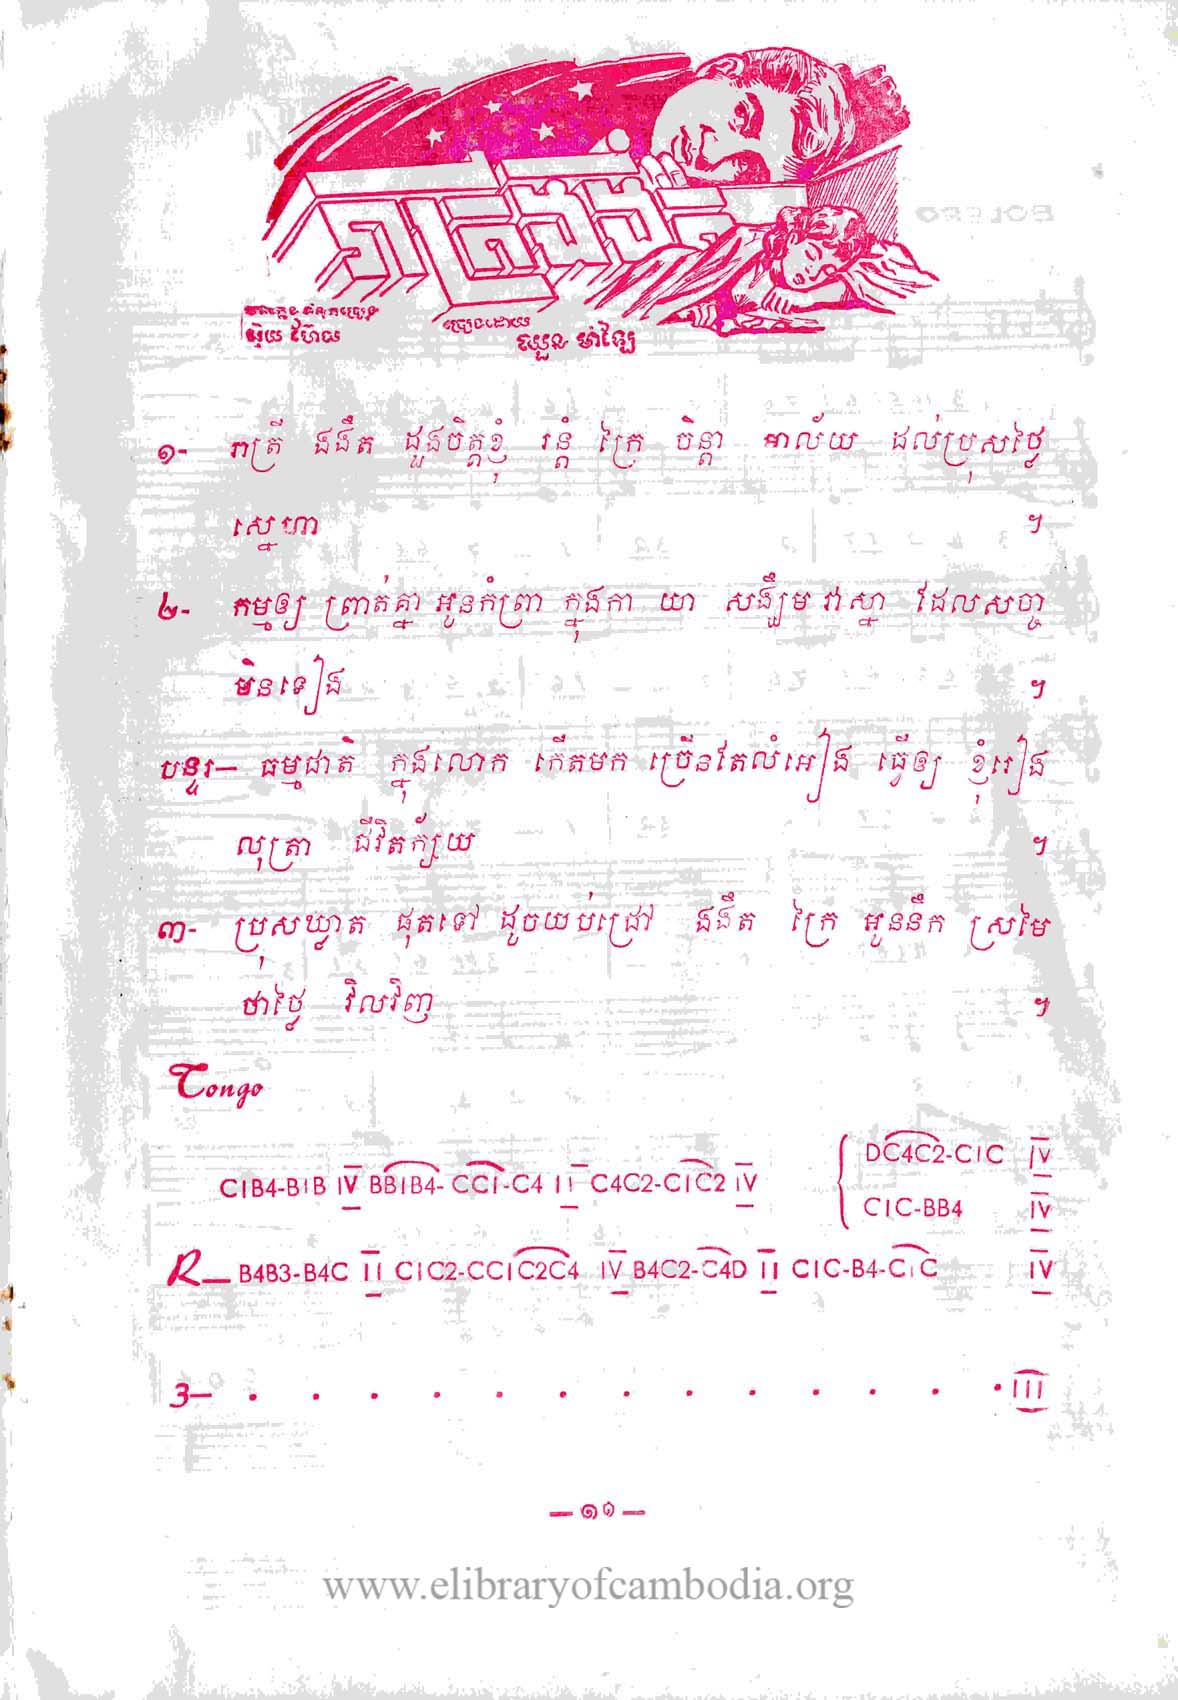 រាត្រីងងឹត
ប្រែងដោយ
ឈួន ម៉ាឡៃ
១- រាត្រី ងងឹត ដួងចិត្តខ្ញុំ រន្ធំ ក្រៃ ចិន្តា អាល័យ ដល់ប្រុសថ្លៃ
ស្នេហា ៗ
២- កម្មឲ្យ ព្រាត់គ្នា អួនកំព្រា ក្នុងកា យា សង្ឃឹម វាស្នា ដែលសច្ចា
មិនទៀង ៗ
បន្ទរ— ធម្មជាតិ ក្នុងលោក កើតមក ច្រើនតែលំអៀង ធ្វើឲ្យ ខ្ញុំរៀង
លុត្រា ជីវិតក្ស័យ ៗ
៣- ប្រុសឃ្លាត ផុតទៅ ដូចយប់ជ្រៅ ងងឹត ក្រៃ អួននឹក ស្រមៃ
ថាថ្លៃ វិលវិញ ៗ
Tongo
DC4C2-C1C IV
C1B4-B1B IV BB1B4- CC1-C4 II C4C2-C1C2 IV
C1C-BB4 IV
R— B4B3-B4C II C1C2-CC1C2C4 IV B4C2-C4D II C1C-B4-C1C IV
3— . . . . . . . . . . . . . III
— ១១ —
www.elibraryofcambodia.org